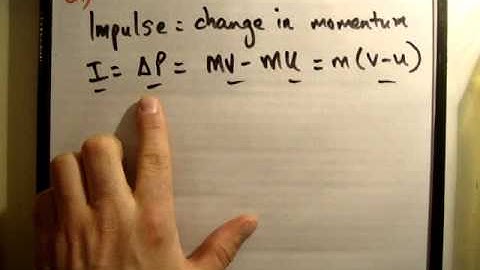 Impulse = change in momentum
I = ΔP = mv - mu = m(v-u)